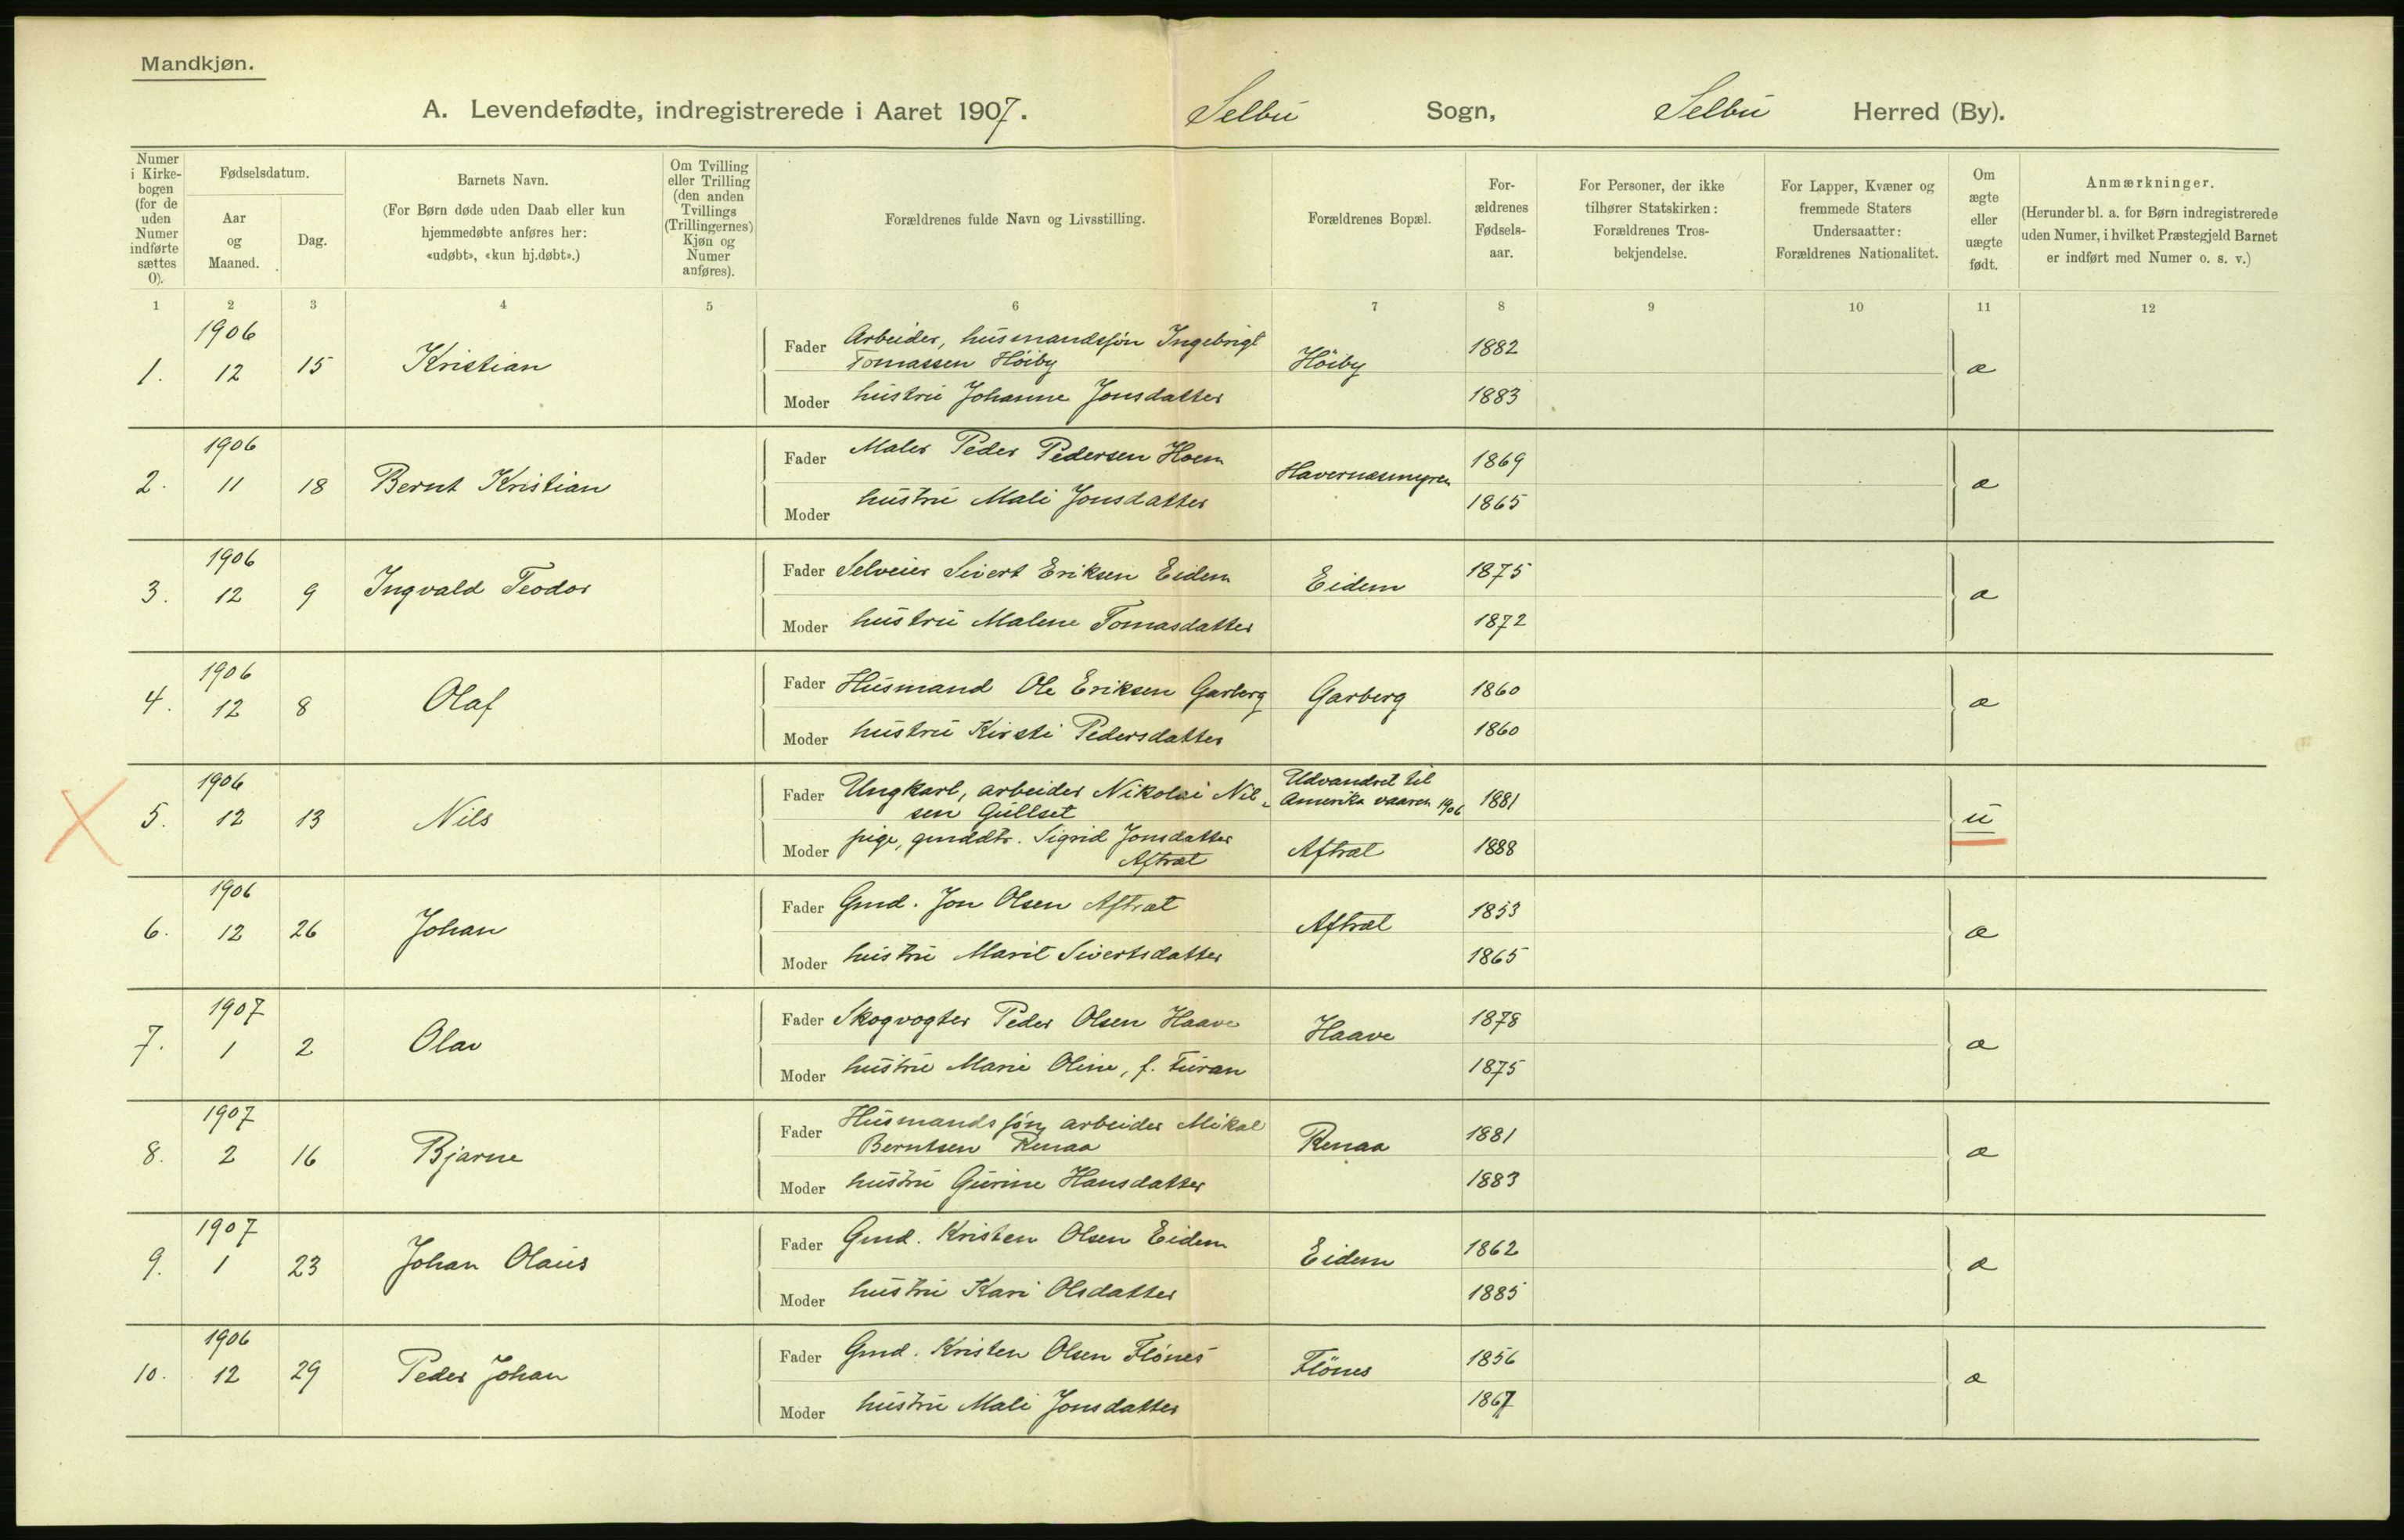 Mandkjøn.
A. Levendefødte, indregistrerede i Aaret 1907. Selbu Sogn, Selbu Herred (By).
Numer i Kirke-bogen (for de uden Numer indførte sættes 0).
Fødselsdatum.
Aar og Maaned.
Dag.
Barnets Navn.
(For Børn døde uden Daab eller kun
hjemmedøbte anføres her:
«udøbt», «kun hj.døbt».)
Om Tvilling
eller Trilling
(den anden
Tvillings
(Trillingernes)
Kjøn og
Numer
anføres).
Forældrenes fulde Navn og Livsstilling.
Forældrenes Bopæl.
For-
ældrenes
Fødsels-
aar.
For Personer, der ikke
tilhører Statskirken:
Forældrenes Tros-
bekjendelse.
For Lapper, Kvæner og
fremmede Staters
Undersaatter:
Forældrenes Nationalitet.
Om
ægte
eller
uægte
født.
Anmærkninger.
(Herunder bl. a. for Børn indregistrerede
uden Numer, i hvilket Præstegjeld Barnet
er indført med Numer o. s. v.)
1 2 3 4 5 6 7 8 9 10 11 12
1906
1. 12 15 Kristian
Fader Arbeider, husmandssøn Ingebrigt
Tomassen Höiby Höiby 1882 æ
Moder hustru Johanne Jonsdatter 1883
1906
2. 11 18 Bernt Kristian
Fader Maler Peder Pedersen Hoem Havernæsmyren 1869 æ
Moder hustru Mali Jonsdatter 1865
1906
3. 12 9 Ingvald Teodor
Fader Selveier Sivert Eriksen Eidem Eidem 1875 æ
Moder hustru Malene Tomasdatter 1872
1906
4. 12 8 Olaf
Fader Husmand Ole Eriksen Garberg Garberg 1860 æ
Moder hustru Kirsti Pedersdatter 1860
1906
5. 12 13 Nils
Fader Ungkarl, arbeider Nikolai Nil-
sen Gullset Udvandret til
Amerika vaaren 1906 1881 u
Moder pige, gmddtr. Sigrid Jonsdatter
Aftræt Aftræt 1888
1906
6. 12 26 Johan
Fader Gmd. Jon Olsen Aftræt Aftræt 1853 æ
Moder hustru Marit Sivertsdatter 1865
1907
7. 1 2 Olav
Fader Skogvogter Peder Olsen Haave Haave 1878 æ
Moder hustru Marie Oline, f. Turan 1875
1907
8. 2 16 Bjarne
Fader Husmandssøn, arbeider Mikal
Berntsen Renaa Renaa 1881 æ
Moder hustru Gurine Hansdatter 1883
1907
9. 1 23 Johan Olaus
Fader Gmd. Kristen Olsen Eidem Eidem 1862 æ
Moder hustru Kari Olsdatter 1885
1906
10. 12 29 Peder Johan
Fader Gmd. Kristen Olsen Flönes Flönes 1856 æ
Moder hustru Mali Jonsdatter 1867